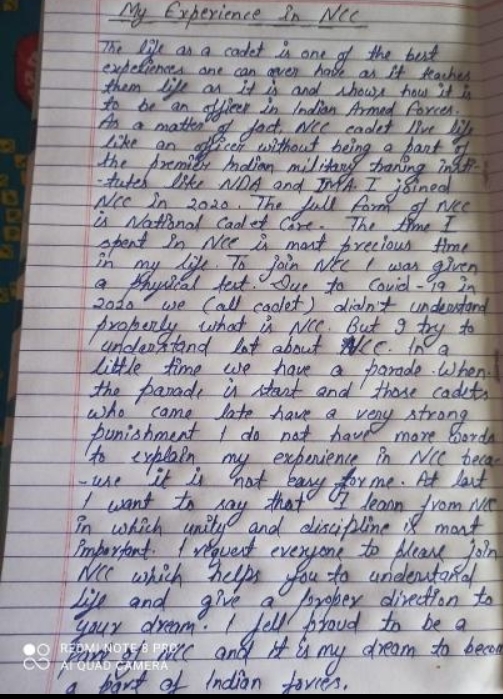 My Experience in NCC
The life as a cadet is one of the best
experiences one can ever have as it teaches
them life as it is and shows how it is
to be an officer in Indian Armed Forces.
As a matter of fact, NCC cadet live life
like an officer without being a part of
the premier Indian military traning insti-
-tutes like NDA and IMA. I joined
NCC in 2020. The full form of NCC
is National Cadet Core. The time I
spent in NCC is most precious time
in my life. To join NCC I was given
a physical test. Due to Covid-19 in
2020 we (all cadet) didn't understand
properly what is NCC. But I try to
understand lot about NCC. In a
little time we have a parade. When
the parade is start and those cadets
who came late have a very strong
punishment I do not have more words
to explain my experience in NCC beca-
-use it is not easy for me. At last
I want to say that I learn from NCC
in which unity and discipline is most
important. I request everyone to please join
NCC which helps you to understand
life and give a proper direction to
your dream. I fell proud to be a
part of NCC and it is my dream to becom
a part of Indian forces.
REDMI NOTE 8 PRO
AI QUAD CAMERA